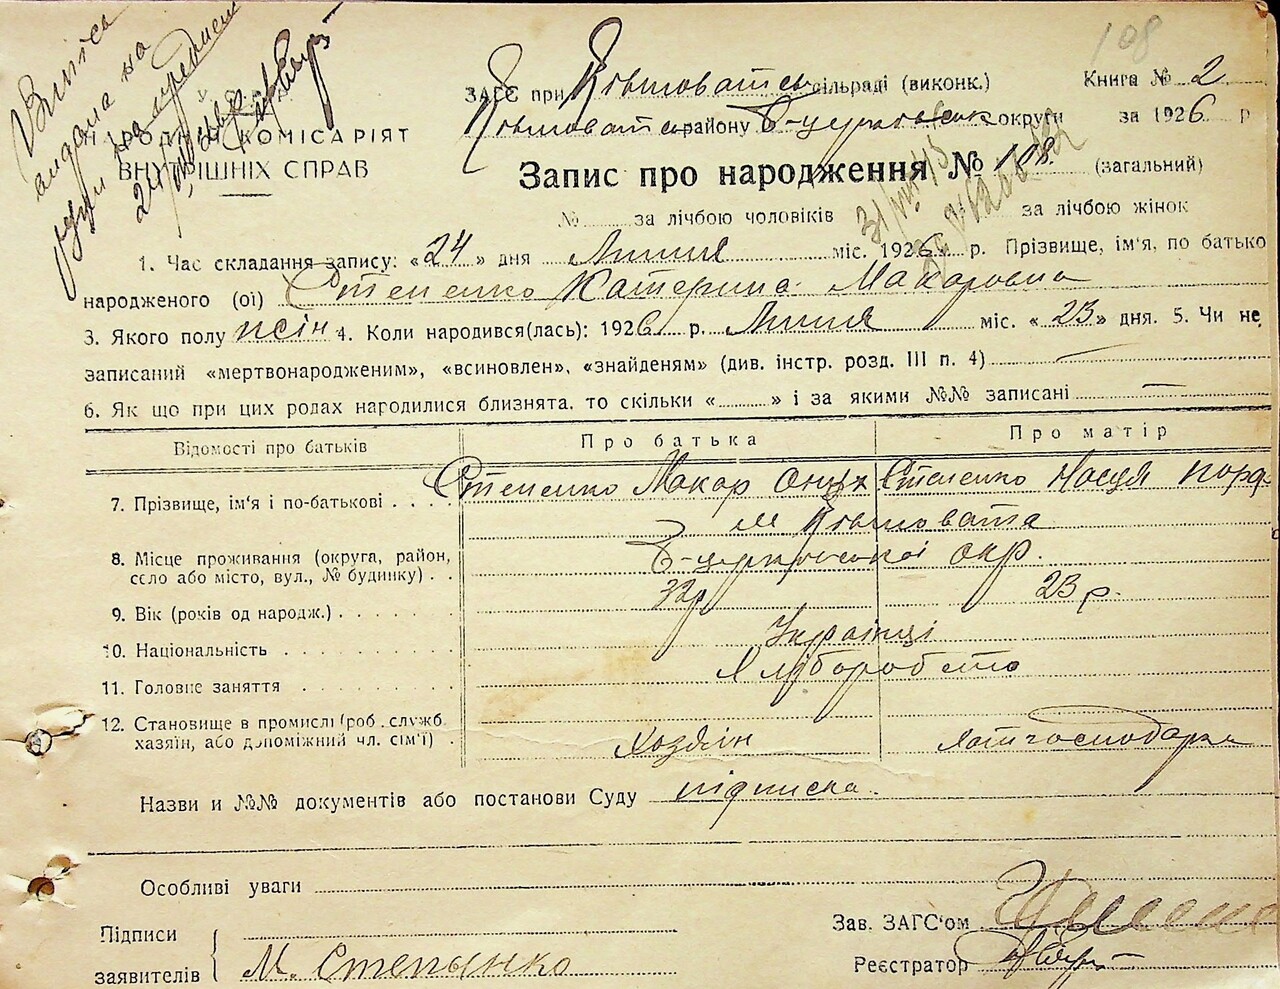 Виписа
видана на
руки
У.С.Р.Р.
НАРОДНІЙ КОМІСАРІЯТ
ВНУТРІШНІХ СПРАВ
108
ЗАГС при сільраді (виконк.) Книга № 2
району Б-церковськ округи за 1926 р
Запис про народження № 108. (загальний)
№ за лічбою чоловіків за лічбою жінок
1. Час складання запису: «24» дня Липня міс. 1926 р. Прізвище, ім'я, по батько
народженого (ої) Степенко Катерина Макаровна
3. Якого полу жсін 4. Коли народився(лась): 1926 р. Липня міс. «23» дня. 5. Чи не
записаний «мертвонародженим», «всиновлен», «знайденям» (див. інстр. розд. III п. 4)
6. Як що при цих родах народилися близнята, то скільки « » і за якими №№ записані —
Відомості про батьків Про батька Про матір
7. Прізвище, ім'я і по-батькові Степенко Макар Степенко Настя
м
8. Місце проживання (округа, район, село або місто, вул., № будинку) Б-церківської окр.
9. Вік (років од народж.) 32р 23 р.
10. Національність Українці
11. Головне заняття Хліборобство
12. Становище в промислі (роб. служб. хазяїн, або допоміжний чл. сім'ї) Хозяїн Домгосподарка
Назви и №№ документів або постанови Суду підписка.
Особливі уваги
Зав. ЗАГС'ом
Підписи
заявителів М. Степынко
Реєстратор